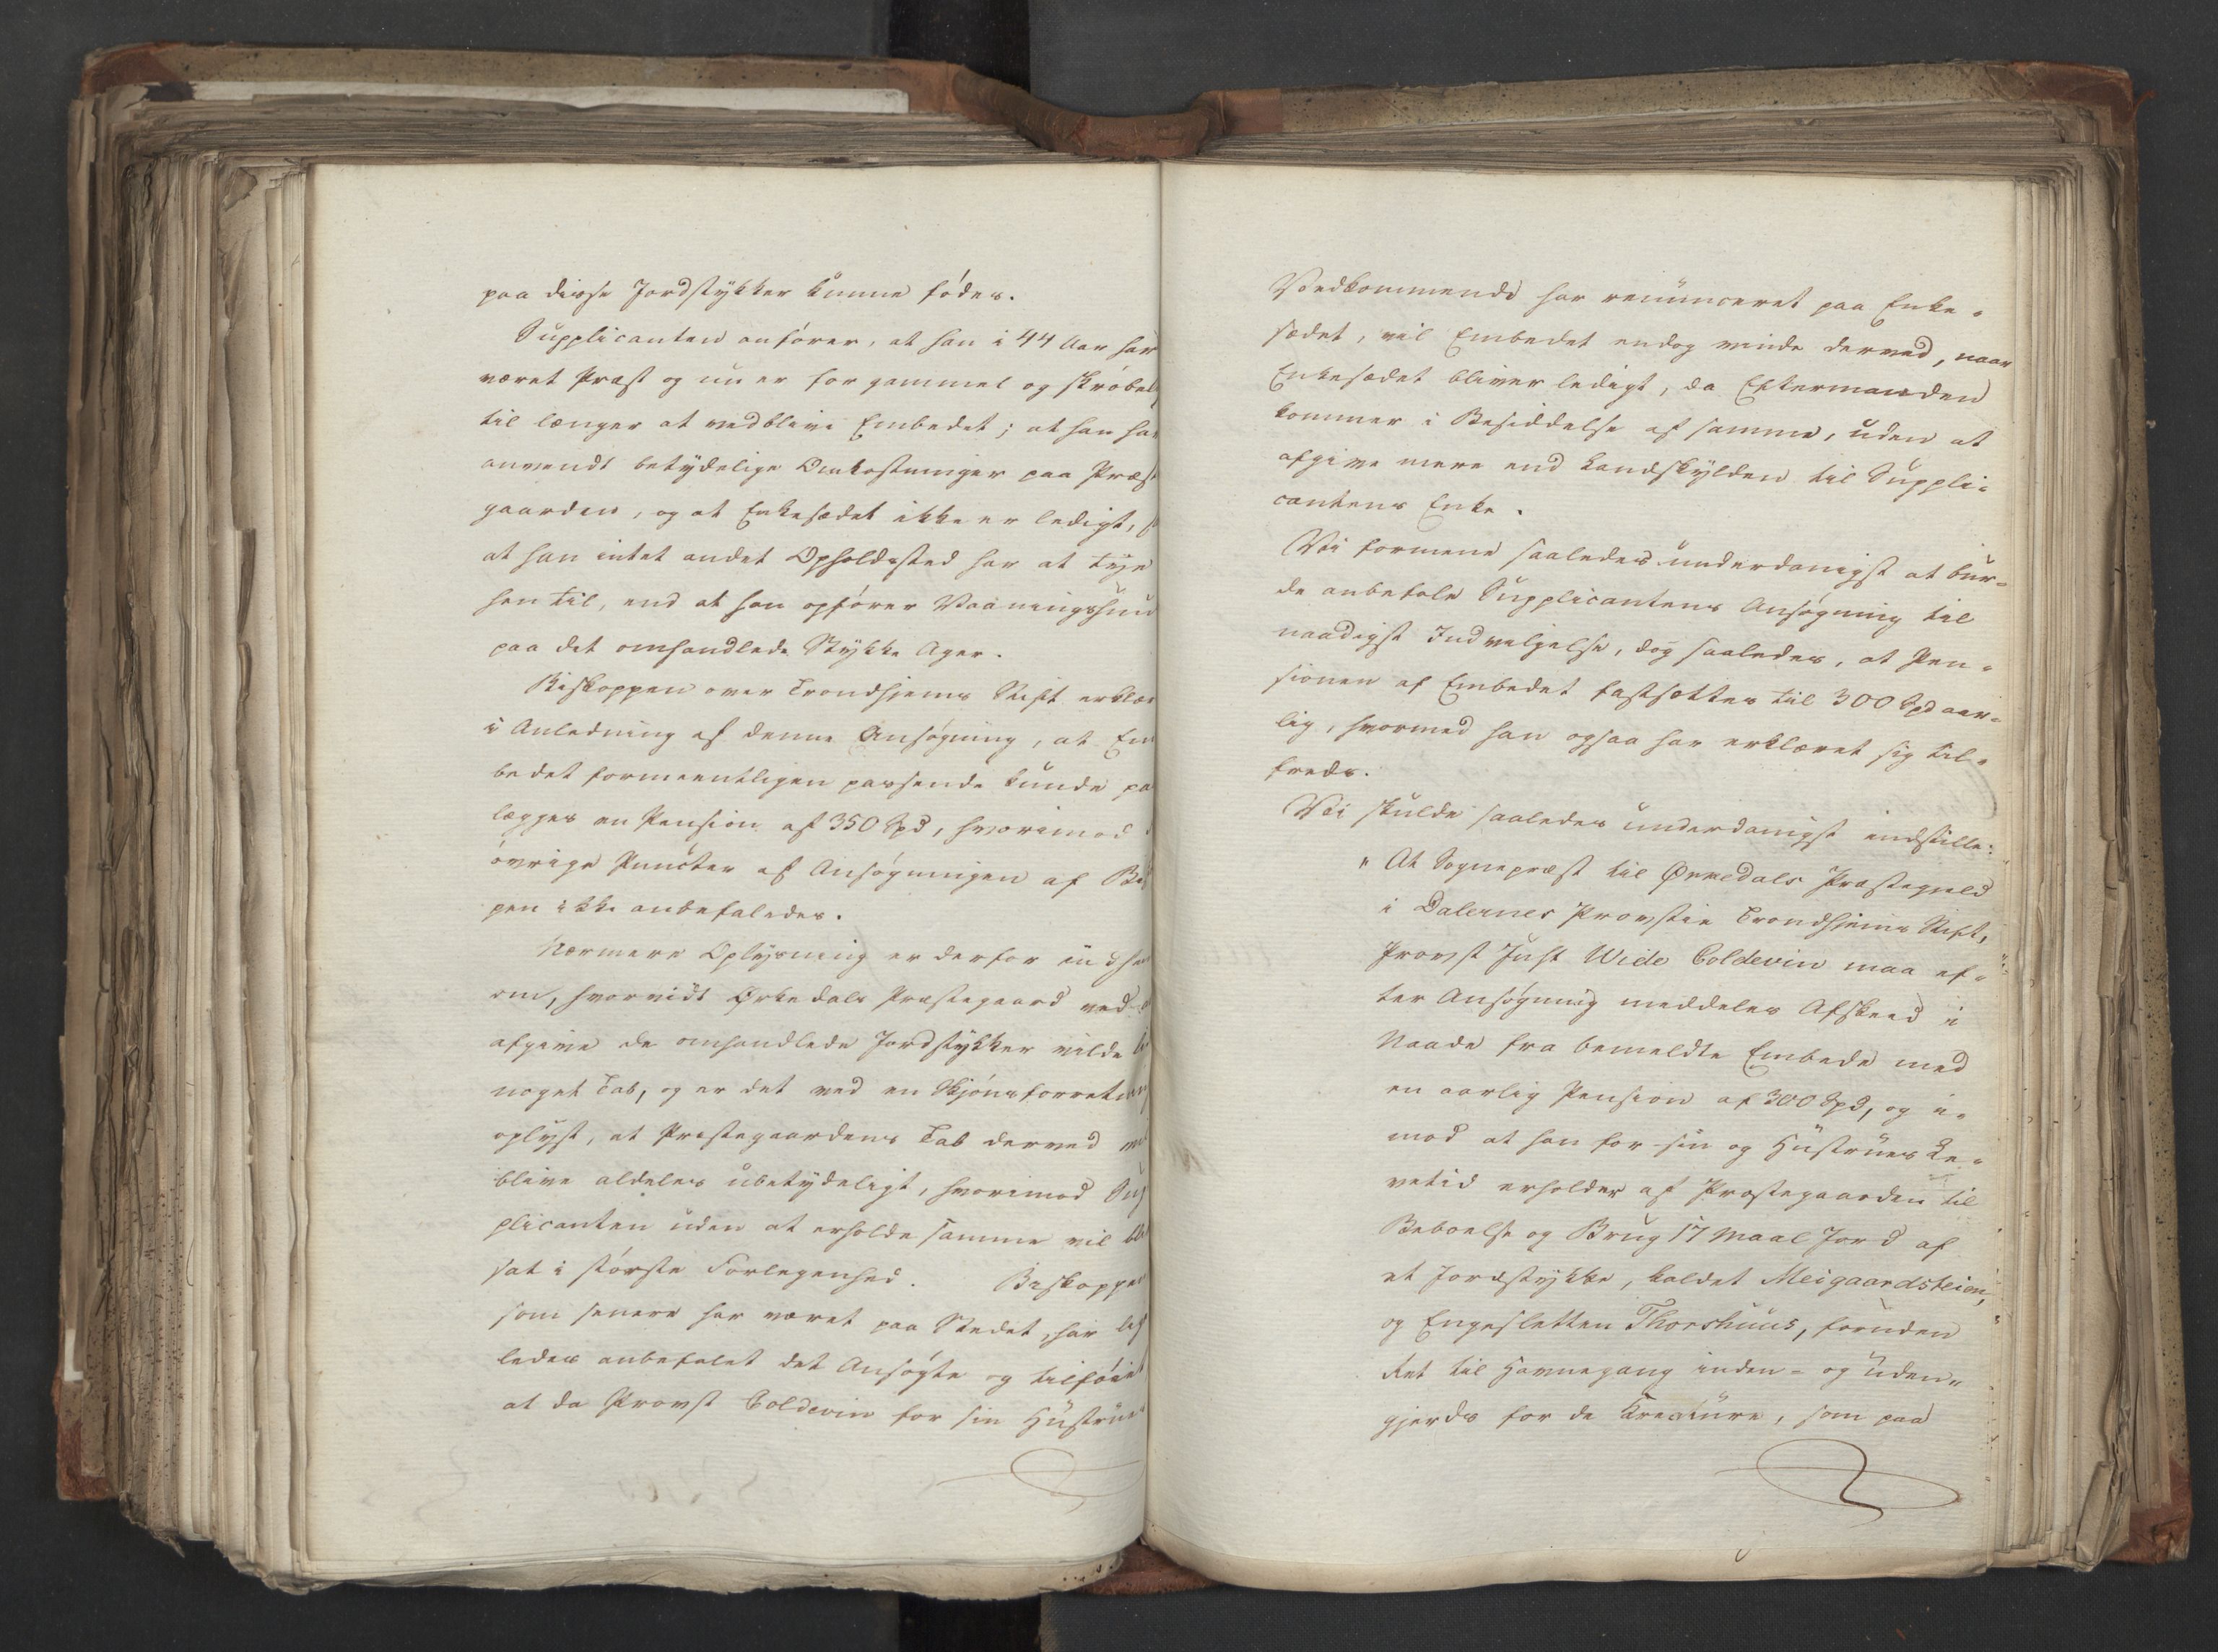 paa disse Jordstykker kunne födes.
Supplicanten anförer, at han i 44 Aar har
været Præst og nu er for gammel og skröbel
til længer at vedblive Embedet; at han ha
anvendt betydelige Omkostninger paa Præst
gaarden, og at Enkesædet ikke er ledigt, s
at han intet andet Opholdssted har at tye
hen til, end at han opförer Vaaningshuus
paa det omhandlede Stykke Ager.
Biskoppen over Trondhjems Stift erklær
i Anledning af denne Ansögning, at Em
bedet formeentligen passende kunde pa
lægges en Pension af 350 Spd, hvorimod d
övrige Puncter af Ansögningen af Bis
pen ikke anbefaledes.
Nærmere Oplysning er derfor indhen
om, hvorvidt Örkedals Præstegaard ved a
afgive de omhandlede Jordstykker vilde li
noget Tab, og er det ved en Skjönsforretni
oplyst, at Præstegaardens Tab derved vil
blive aldeles ubetydeligt, hvorimod Sup
plicanten uden at erholde samme vil bli
sat i störste Forlegenhed. Biskoppen
som senere har været paa Stedet, har lig
ledes anbefalet det Ansögte og tilföiet
at da Provst Coldevin for sin Hustrues
Vedkommende har renunceret paa Enke-
sædet, vil Embedet endog vinde derved, naar
Enkesædet bliver ledigt, da Eftermanden
kommer i Besiddelse af samme, uden at
afgive mere end Landskylden til Suppli-
cantens Enke.
Vi formene saaledes underdanigst at bur-
de anbefale Supplicantens Ansögning til
naadigst Indvilgelse, dog saaledes, at Pen-
sionen af Embedet fastsættes til 300 Spd aar-
lig, hvormed han ogsaa har erklæret sig til-
freds.
Vi skulde saaledes underdanigst indstille:
" At Sognepræst til Örkedals Præstegjeld
i Dalernes Provstie Trondhjems Stift,
Provst Just Wide Coldevin maa ef-
ter Ansögning meddeles Afskeed i
Naade fra bemeldte Embede med
en aarlig Pension af 300 Spd, og i-
mod at han for sin og Hustrues Le-
vetid erholder af Præstegaarden til
Beboelse og Brug 17 Maal Jord af
et Jordstykke, kaldet Meigaardsteien,
og Engesletten Thorshuus, foruden
Ret til Havnegang inden- og uden-
gjerds for de Kreature, som paa